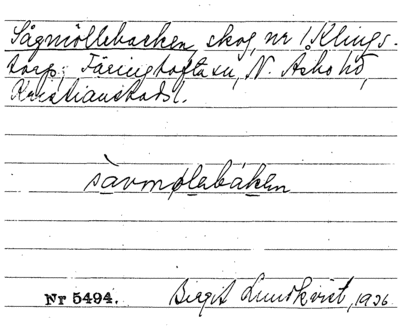 Sågmöllebacken, skog, nr 1 Klings-
torp, Färingtofta sn, N. Åsbo hd,
Kristianstads l.
såvmølebáken
Nr 5494. Birgit Lundkvist, 1936